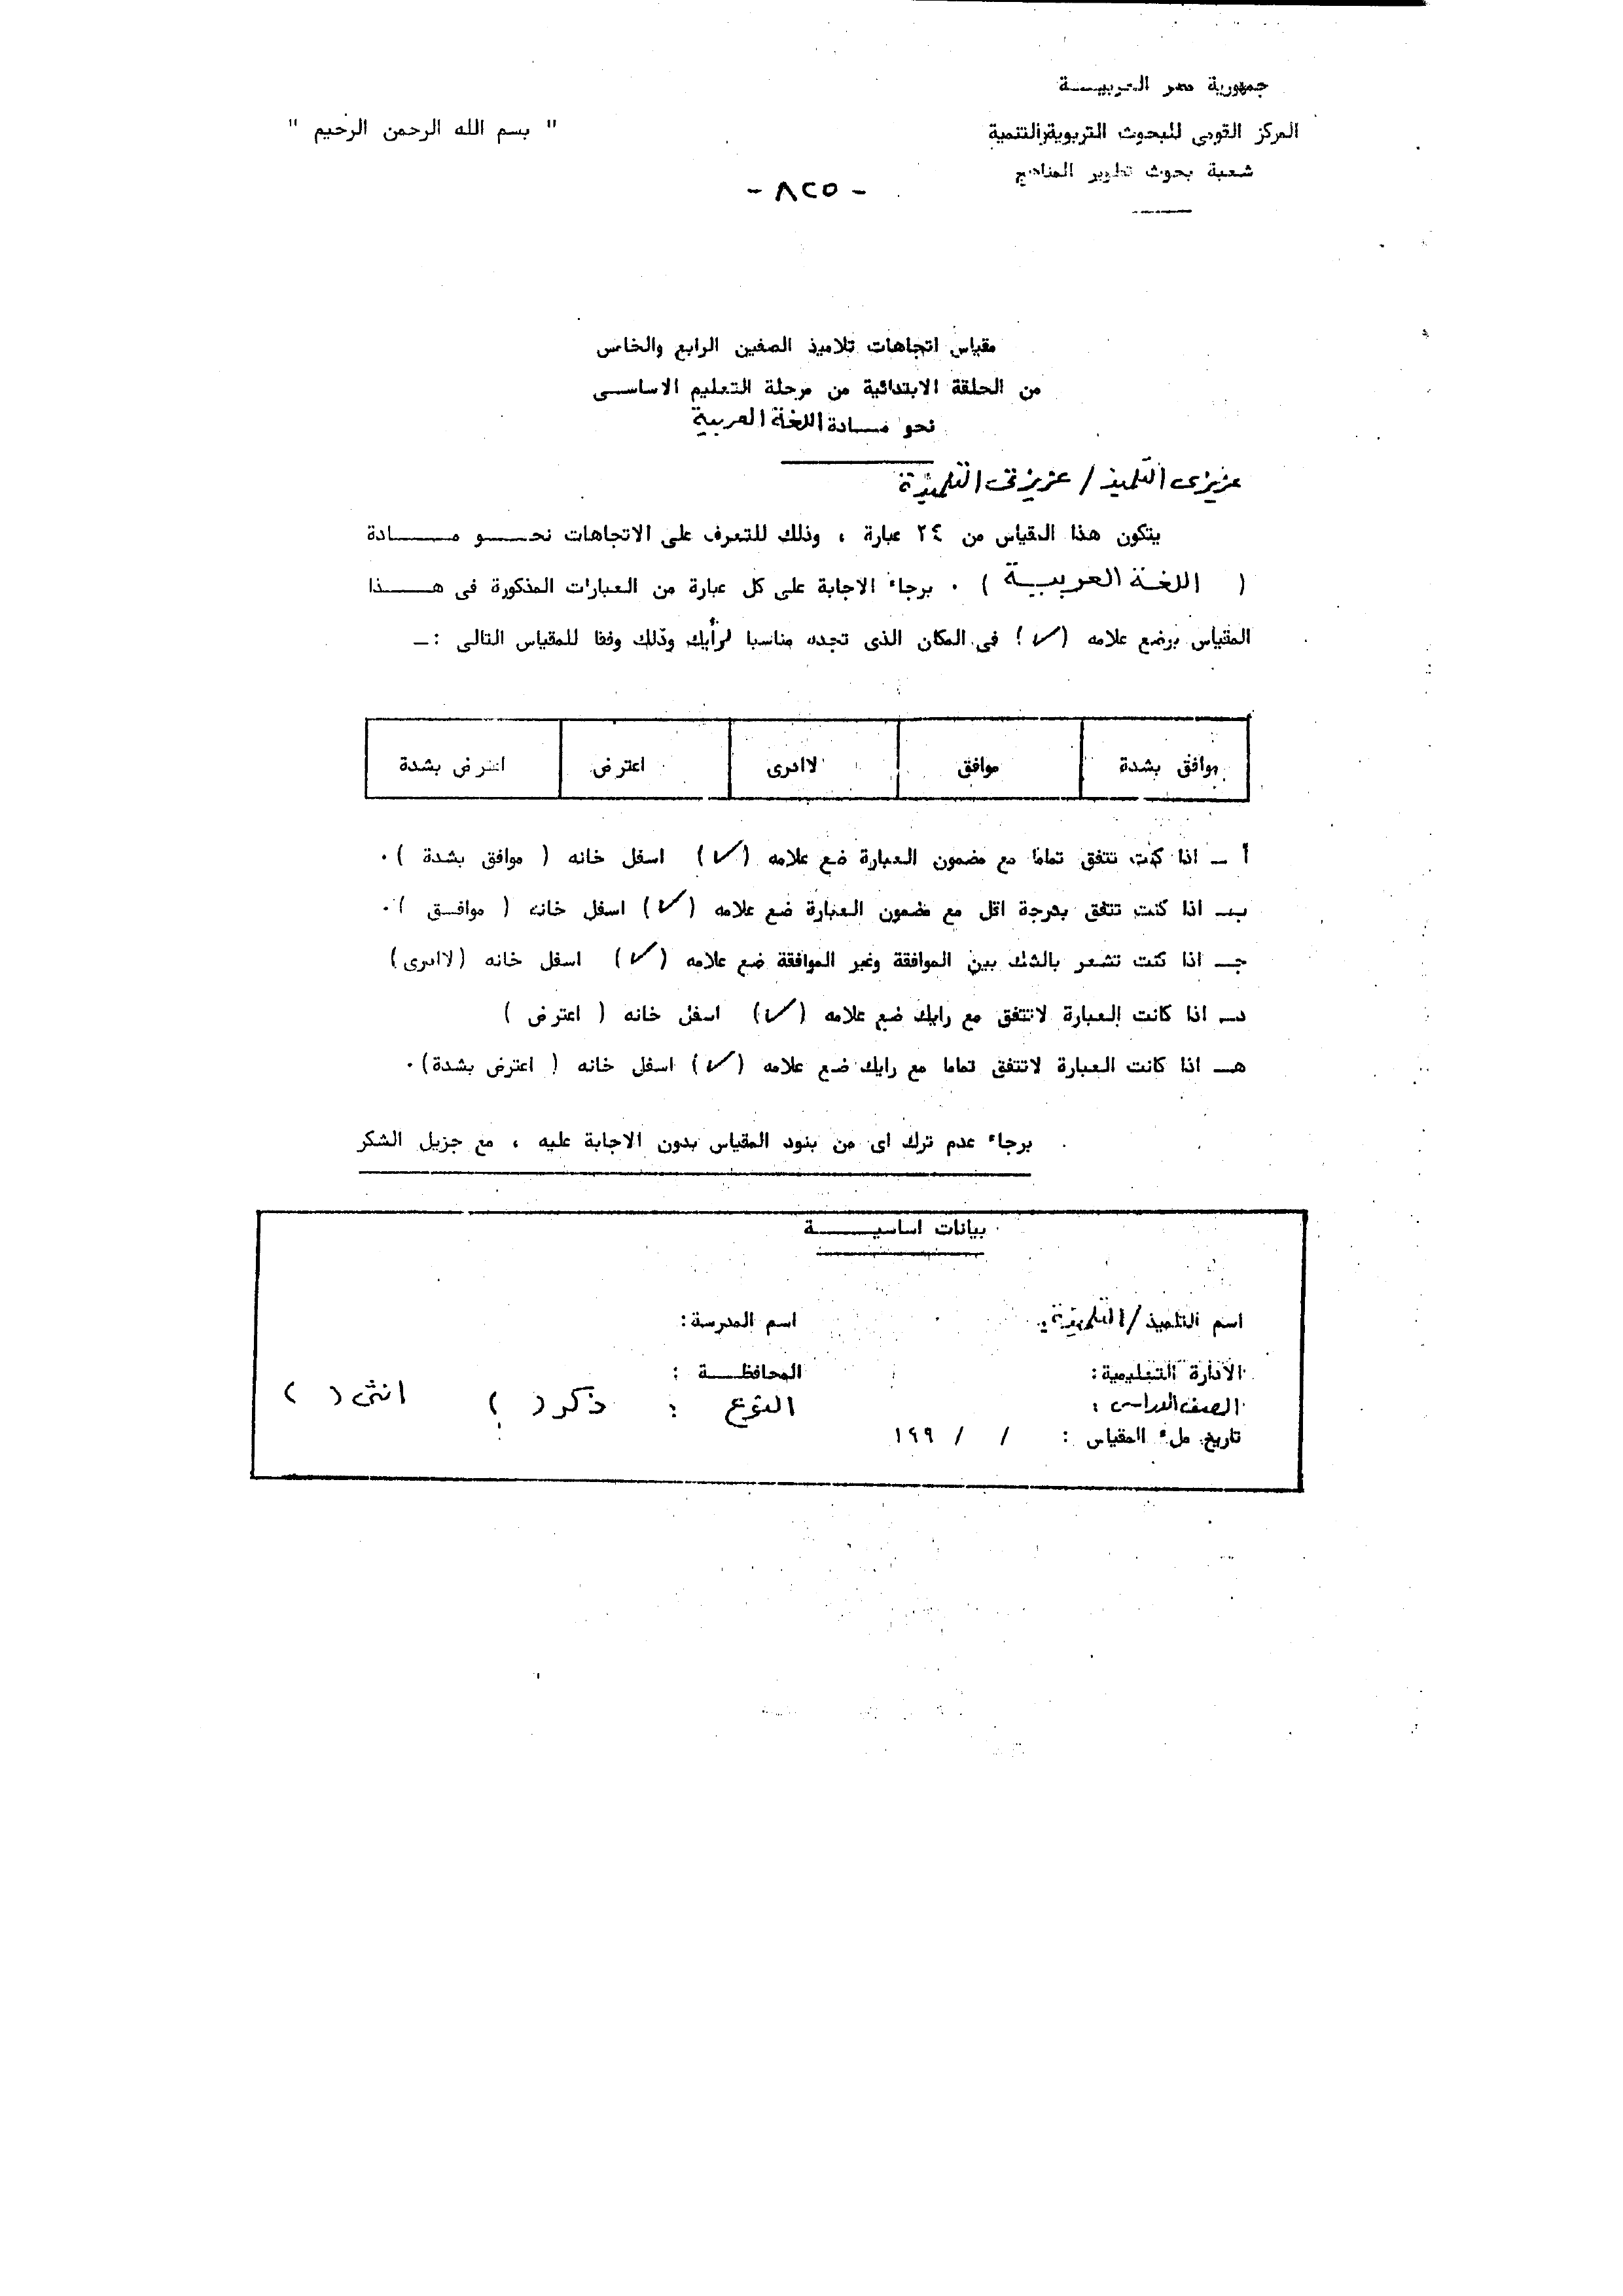 جمهورية مصر العربيـــة
المركز القومى للبحوث التربوية والتنمية
" بسم الله الرحمن الرحيم "
شعبة بحوث تطوير المناهج
- ٨٢٥ -
مقياس اتجاهات تلاميذ الصفين الرابع والخامس
من الحلقة الابتدائية من مرحلة التعليم الاساســى
نحو مــادة اللغة العربية
عزيزى التلميذ / عزيزتى التلميذة
يتكون هذا المقياس من ٢٤ عبارة ، وذلك للتعرف على الاتجاهات نحــو مــــادة
( اللغة العربيـة ) . برجاء الاجابة على كل عبارة من العبارات المذكورة فى هــــذا
المقياس بوضع علامه (✓) فى المكان الذى تجده مناسبا لرأيك وذلك وفقا للمقياس التالى :ـ
موافق بشدة موافق لاادرى اعترض اعترض بشدة
أ ـ اذا كنت تتفق تماما مع مضمون العبارة ضع علامه (✓) اسفل خانه ( موافق بشدة ).
بـ اذا كنت تتفق بدرجة اقل مع مضمون العبارة ضع علامه (✓) اسفل خانه ( موافــق ).
جـ اذا كنت تشعر بالشك بين الموافقة وغير الموافقة ضع علامه (✓) اسفل خانه (لاادرى)
دـ اذا كانت العبارة لاتتفق مع رايك ضع علامه (✓) اسفل خانه ( اعترض )
هـ اذا كانت العبارة لاتتفق تماما مع رايك ضع علامه (✓) اسفل خانه ( اعترض بشدة).
برجاء عدم ترك اى من بنود المقياس بدون الاجابة عليه ، مع جزيل الشكر
بيانات اساسيــــة
اسم التلميذ /التلميذة: اسم المدرسة:
الادارة التعليمية: المحافظــة :
الصف الدراسى : النوع : ذكر ( ) انثى ( )
تاريخ ملء المقياس : / / ١٩٩